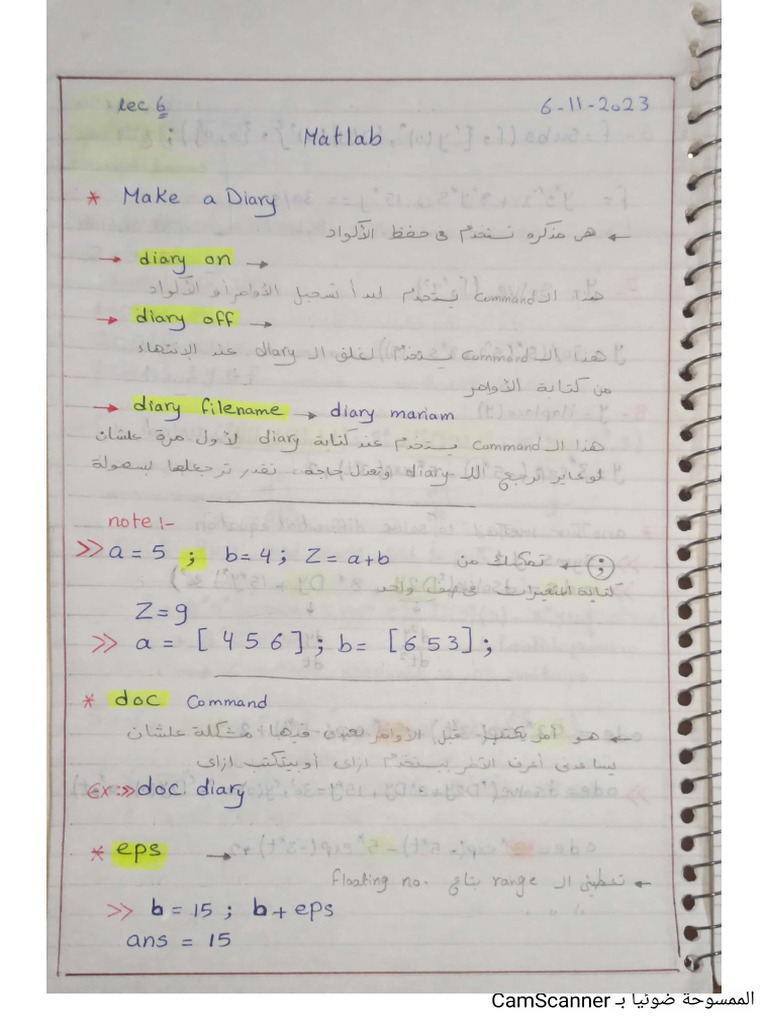 lec 6
6-11-2023
Matlab
* Make a Diary
← هى مذكره تستخدم فى حفظ الأكواد
→ diary on →
هذا الـ Command يستخدم لبدأ تسجيل الأوامر أو الأكواد
→ diary off →
هذا الـ Command يستخدم لغلق الـ diary عند الإنتهاء
من كتابة الأوامر
→ diary filename → diary mariam
هذا الـ Command يستخدم عند كتابة diary لأول مرة علشان
لو عايز ارجع للـ diary وتعدل حاجه، تقدر ترجعلها بسهولة
note :-
>> a = 5 ; b = 4 ; Z = a+b
(;) ← تمكنك من
كتابة المتغيرات فى صف واحد
Z = 9
>> a = [ 4 5 6 ] ; b = [ 6 5 3 ] ;
* doc Command
← هو أمر يكتب قبل الأوامر فيها مشكلة علشان
يساعدنى أعرف الأمر بيستخدم ازاى أو بيتكتب ازاى
Ex:>> doc diary
* eps →
← تعطينى الـ range بتاع floating no.
>> b = 15 ; b + eps
ans = 15
الممسوحة ضوئيا بـ CamScanner